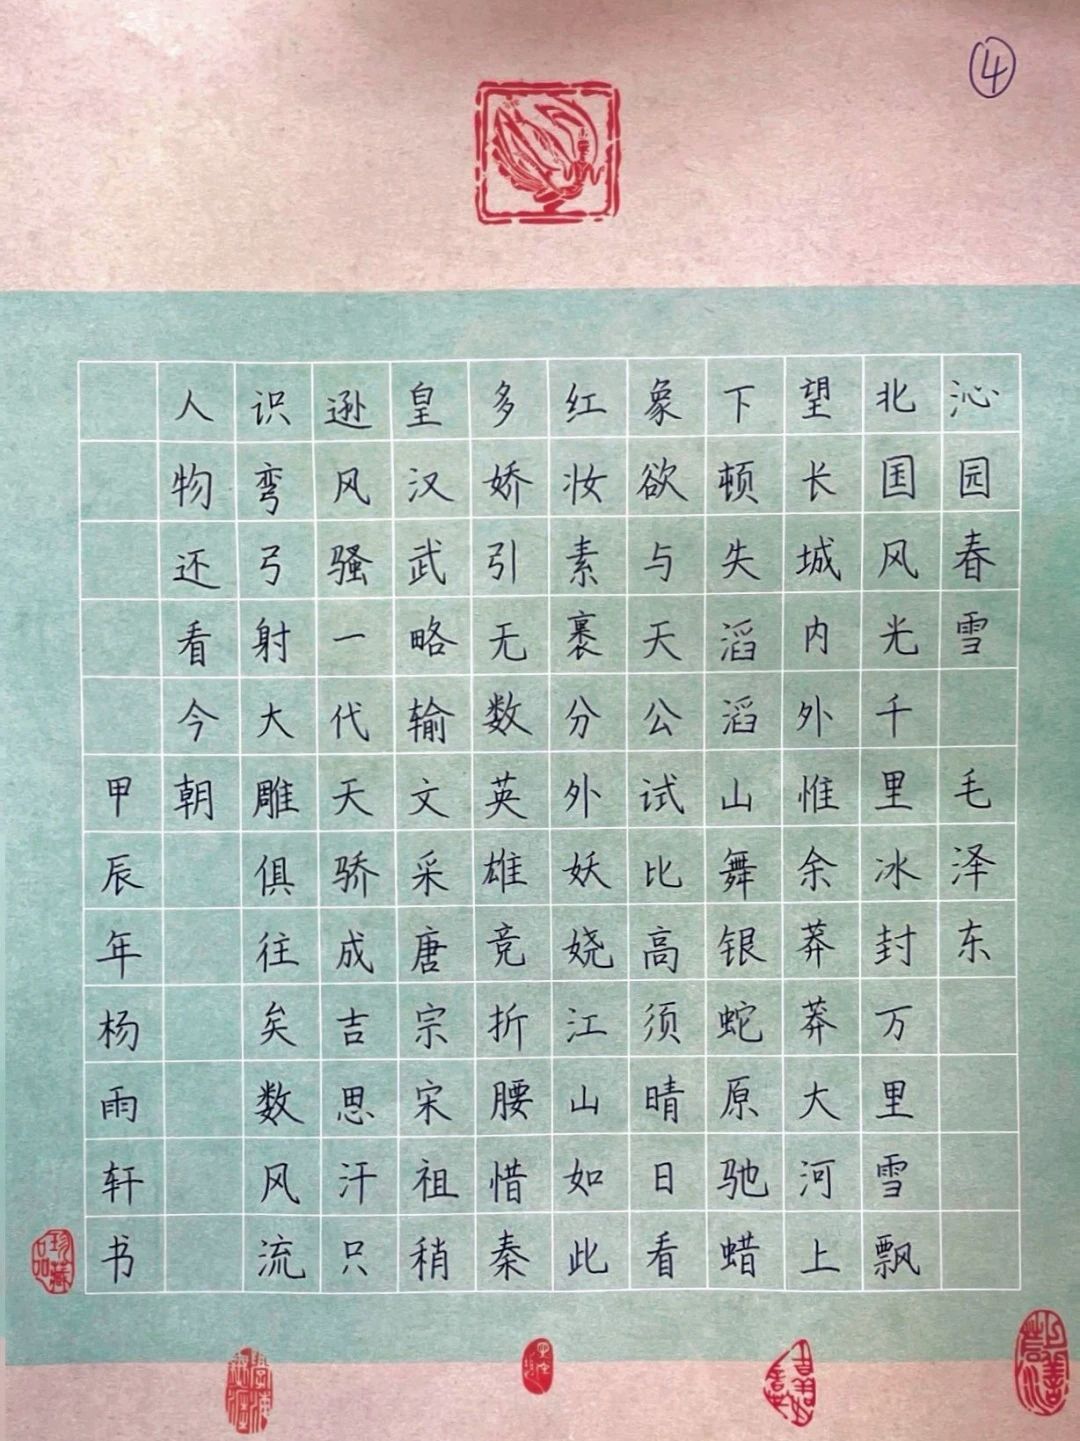 ④
沁园春雪 毛泽东
北国风光千里冰封万里雪飘
望长城内外惟余莽莽大河上
下顿失滔滔山舞银蛇原驰蜡
象欲与天公试比高须晴日看
红妆素裹分外妖娆江山如此
多娇引无数英雄竞折腰惜秦
皇汉武略输文采唐宗宋祖稍
逊风骚一代天骄成吉思汗只
识弯弓射大雕俱往矣数风流
人物还看今朝
甲辰年杨雨轩书
珍藏品